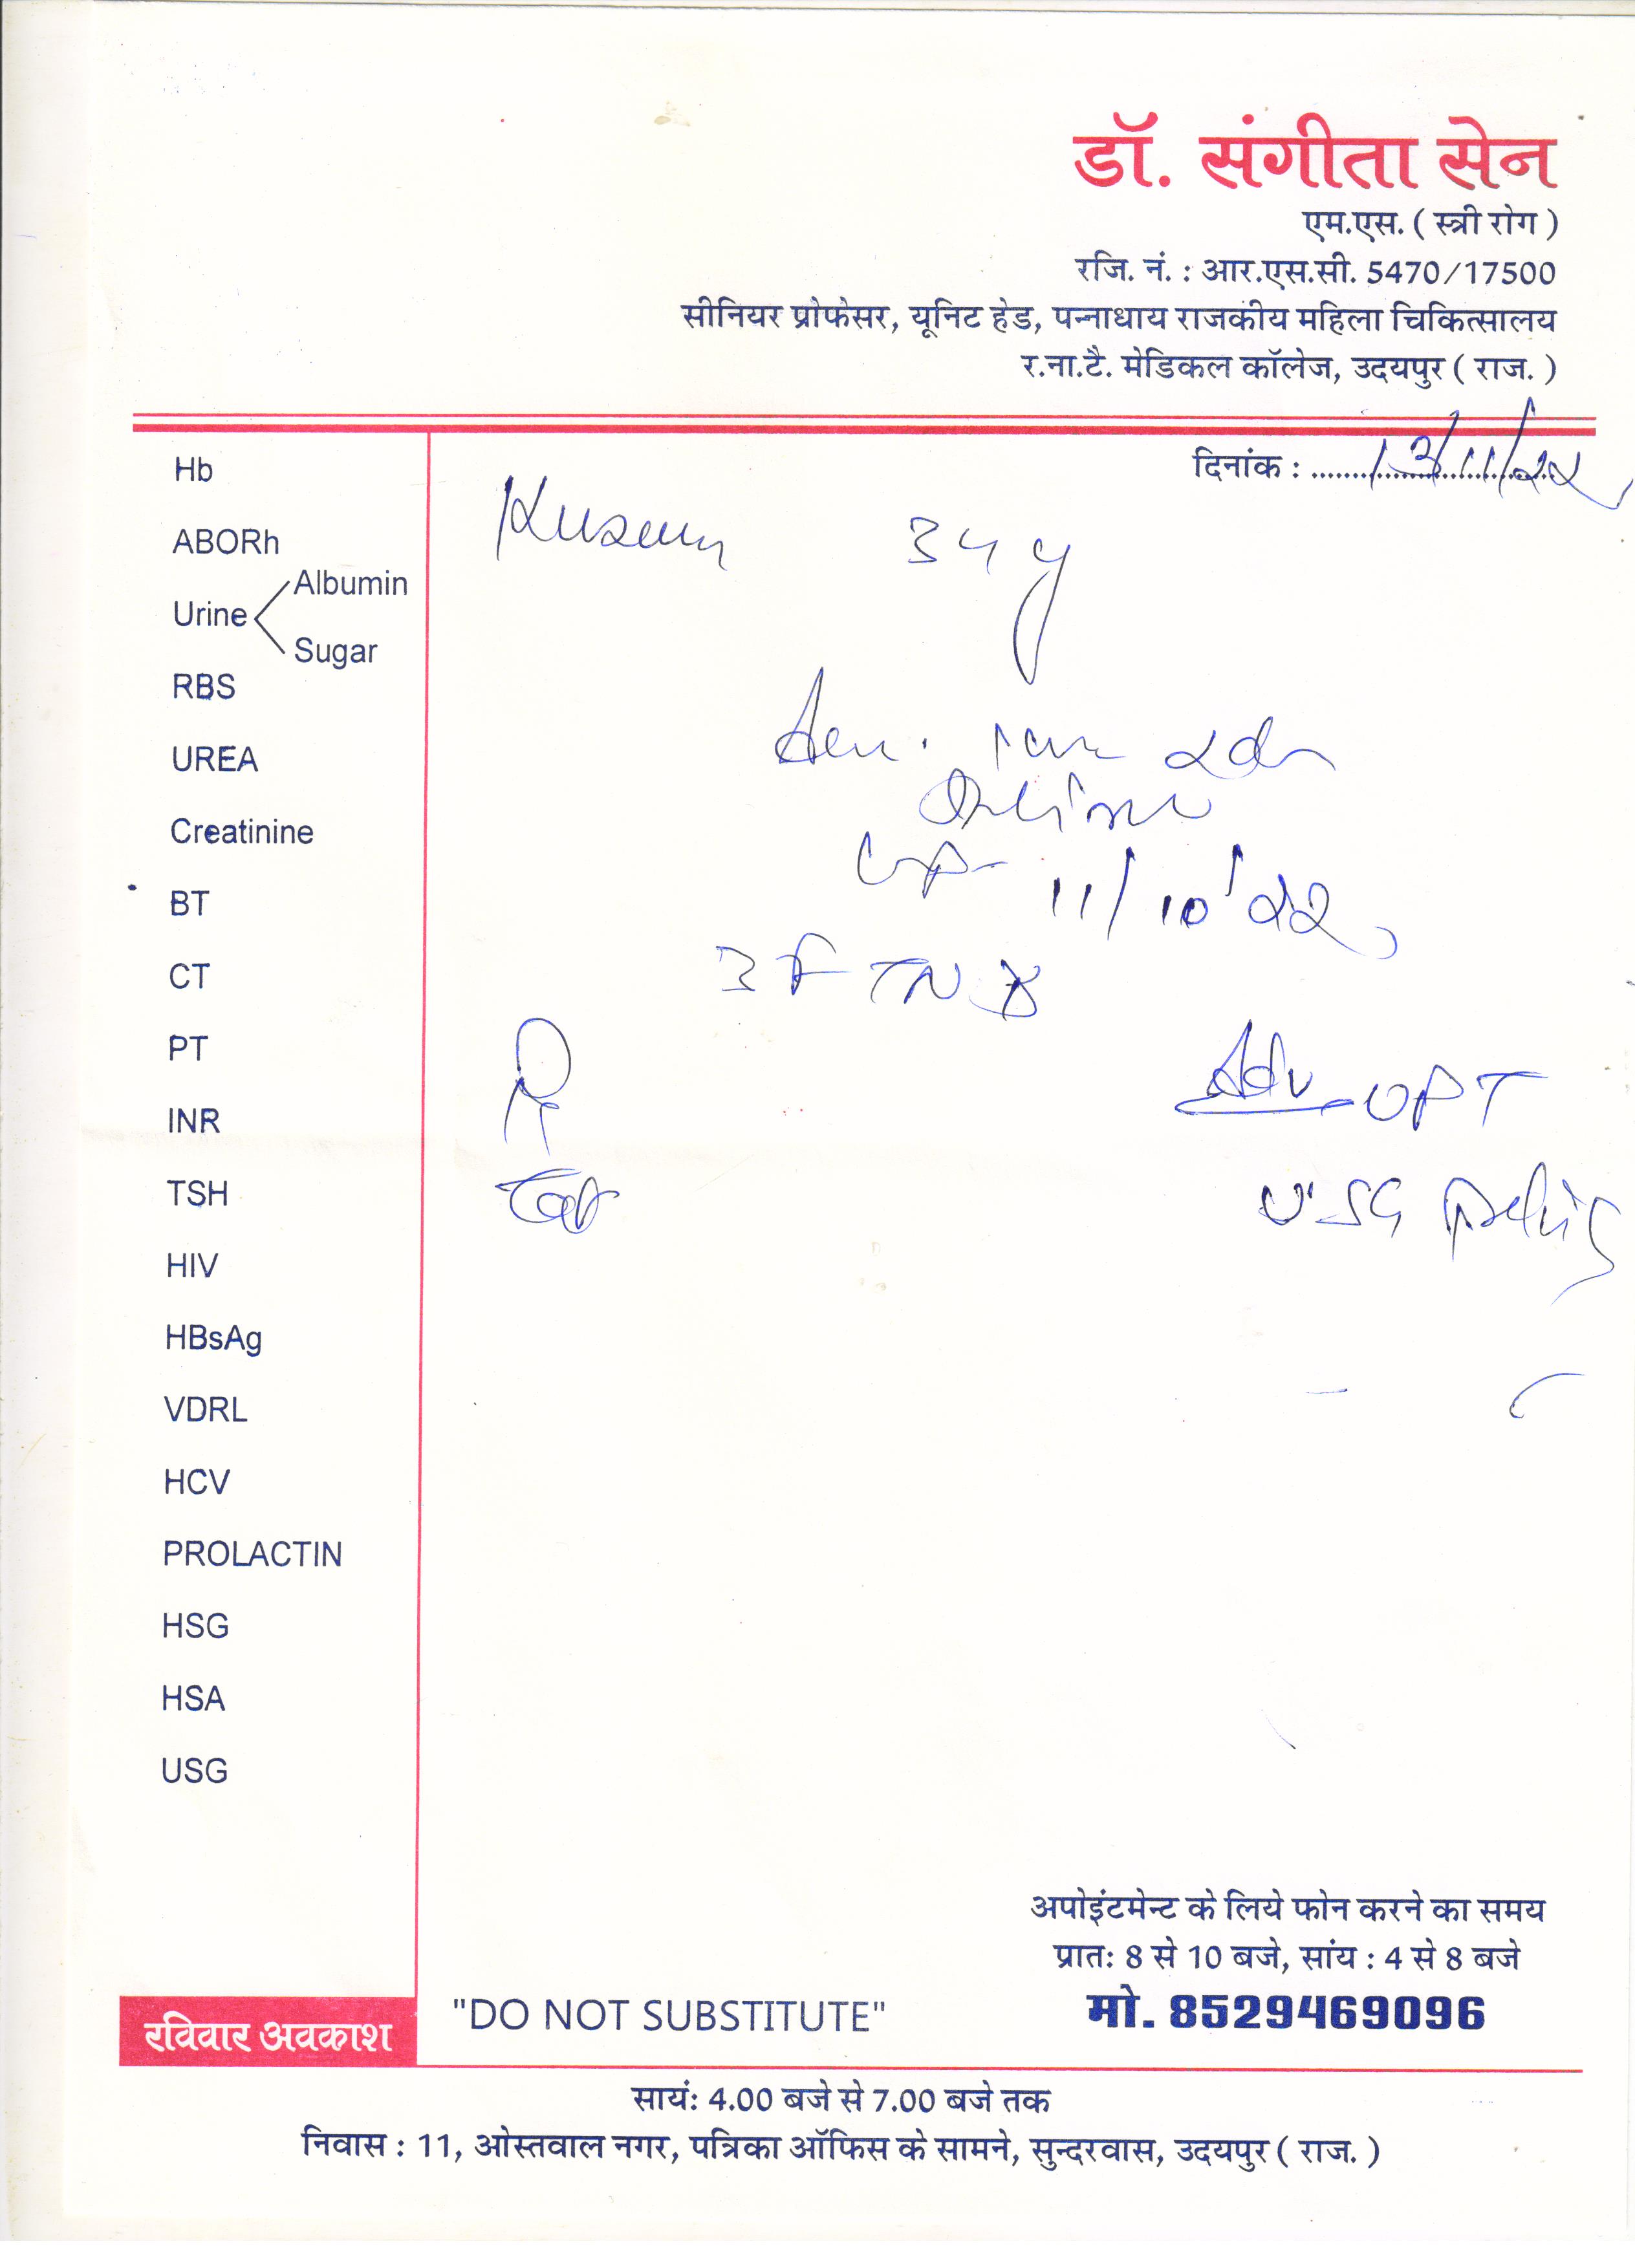 डॉ. संगीता सेन
एम.एस. ( स्त्री रोग )
रजि. नं. : आर.एस.सी. 5470/17500
सीनियर प्रोफेसर, यूनिट हेड, पन्नाधाय राजकीय महिला चिकित्सालय
र.ना.टै. मेडिकल कॉलेज, उदयपुर ( राज. )
दिनांक : 13/11/22
Kusum 34 y
11/10/22
3 FTND
Adv - UPT
USG pelvis
Tab
Hb
ABORh
Urine Albumin
Sugar
RBS
UREA
Creatinine
BT
CT
PT
INR
TSH
HIV
HBsAg
VDRL
HCV
PROLACTIN
HSG
HSA
USG
अपोइंटमेन्ट के लिये फोन करने का समय
प्रात: 8 से 10 बजे, सांय : 4 से 8 बजे
मो. 8529469096
"DO NOT SUBSTITUTE"
रविवार अवकाश
सायं: 4.00 बजे से 7.00 बजे तक
निवास : 11, ओस्तवाल नगर, पत्रिका ऑफिस के सामने, सुन्दरवास, उदयपुर ( राज. )